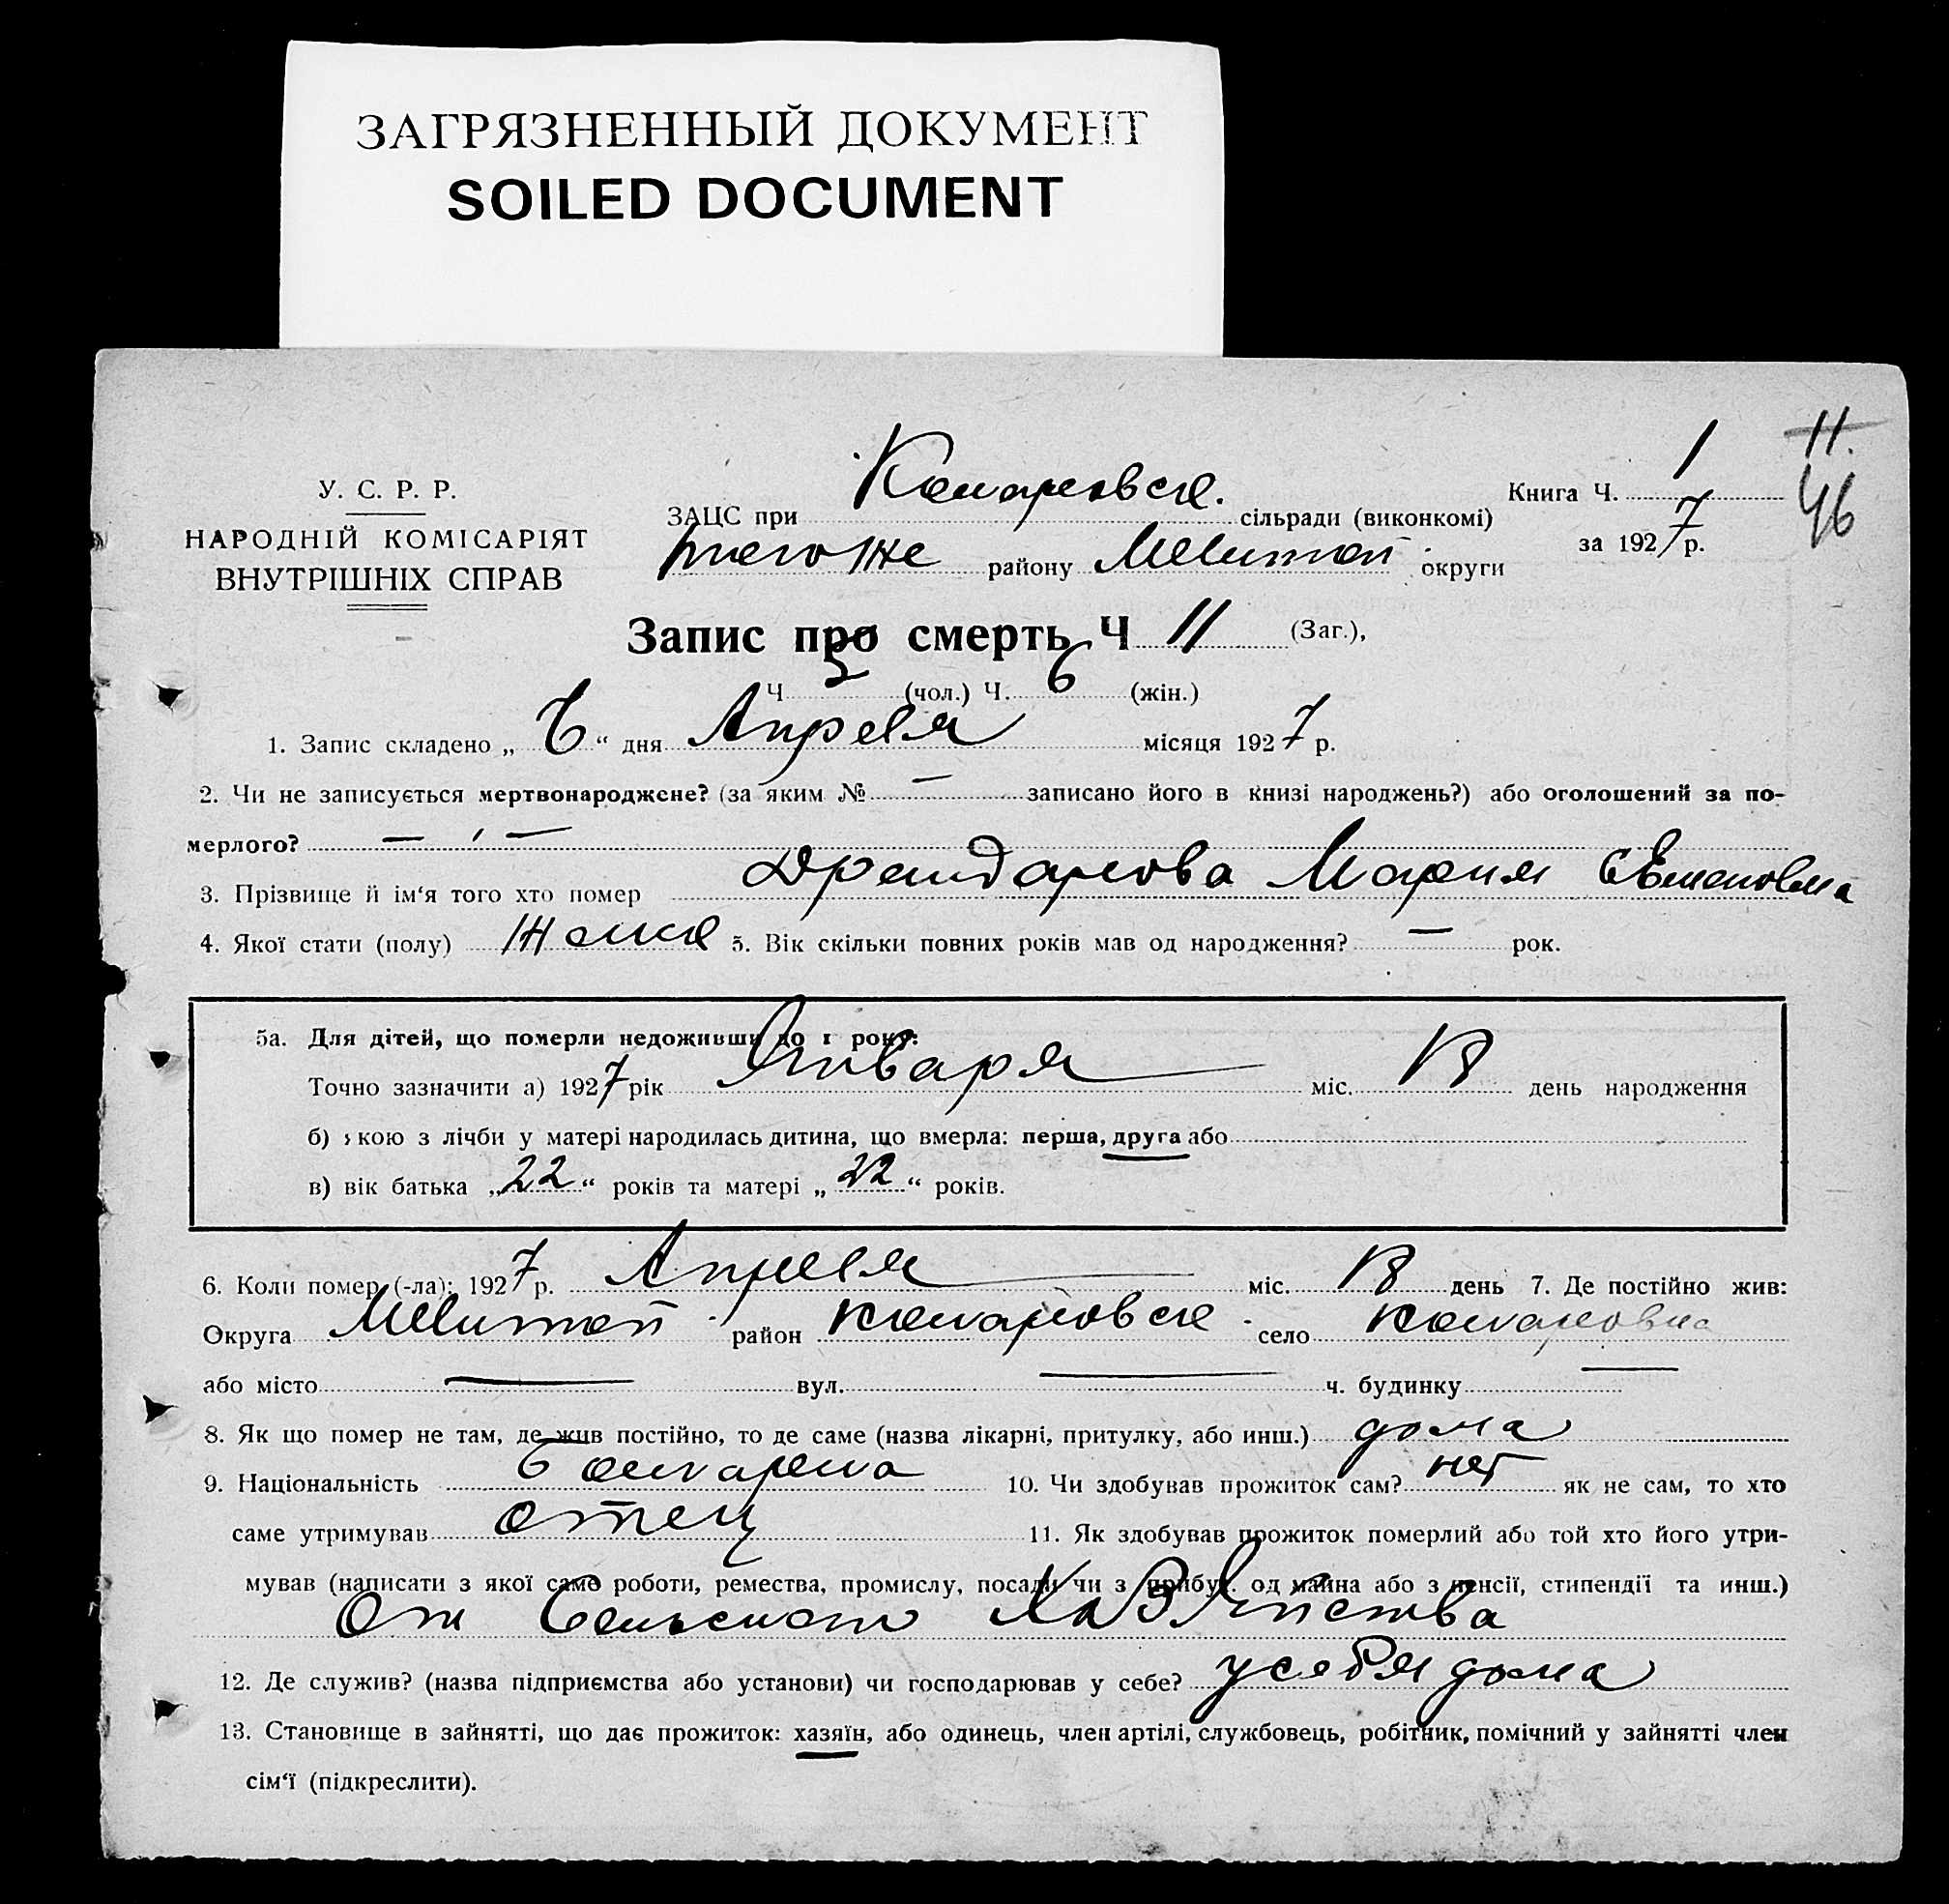 ЗАГРЯЗНЕННЫЙ ДОКУМЕНТ
SOILED DOCUMENT
11.
46
У. С. Р. Р.
НАРОДНІЙ КОМІСАРІЯТ
ВНУТРІШНІХ СПРАВ
ЗАЦС при сільради (виконкомі)
Книга Ч. 1
за 1927 р.
того же району Мелитоп. округи
Запис про смерть Ч 11 (Заг.),
Ч 5 (чол.) Ч. 6 (жін.)
1. Запис складено „ “ дня Апреля місяця 1927 р.
2. Чи не записується мертвонароджене? (за яким № — записано його в книзі народжень?) або оголошений за по-
мерлого? — , —
3. Прізвище й ім'я того хто помер Мария
4. Якої стати (полу) 5. Вік скільки повних років мав од народження? — рок.
5а. Для дітей, що померли недоживши до 1 року:
Точно зазначити а) 1927 рік Января міс. день народження
б) якою з лічби у матері народилась дитина, що вмерла: перша, друга або
в) вік батька „22“ років та матері „22“ років.
6. Коли помер (-ла): 1927 р. Апреля міс. день 7. Де постійно жив:
Округа Мелитоп. район село
або місто — вул. — ч. будинку —
8. Як що помер не там, де жив постійно, то де саме (назва лікарні, притулку, або инш.) дома
9. Національність 10. Чи здобував прожиток сам? нет як не сам, то хто
саме утримував отец 11. Як здобував прожиток померлий або той хто його утри-
мував (написати з якої само роботи, ремества, промислу, посади чи з прибут. од майна або з пенсії, стипендії та инш.)
От Сельского Хозяйства
12. Де служив? (назва підприємства або установи) чи господарював у себе? у себя дома
13. Становище в зайнятті, що дає прожиток: хазяїн, або одинець, член артілі, службовець, робітник, помічний у зайнятті член
сім'ї (підкреслити).